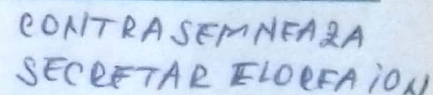 CONTRASEMNEAZA
SECRETAR FLOREA ION